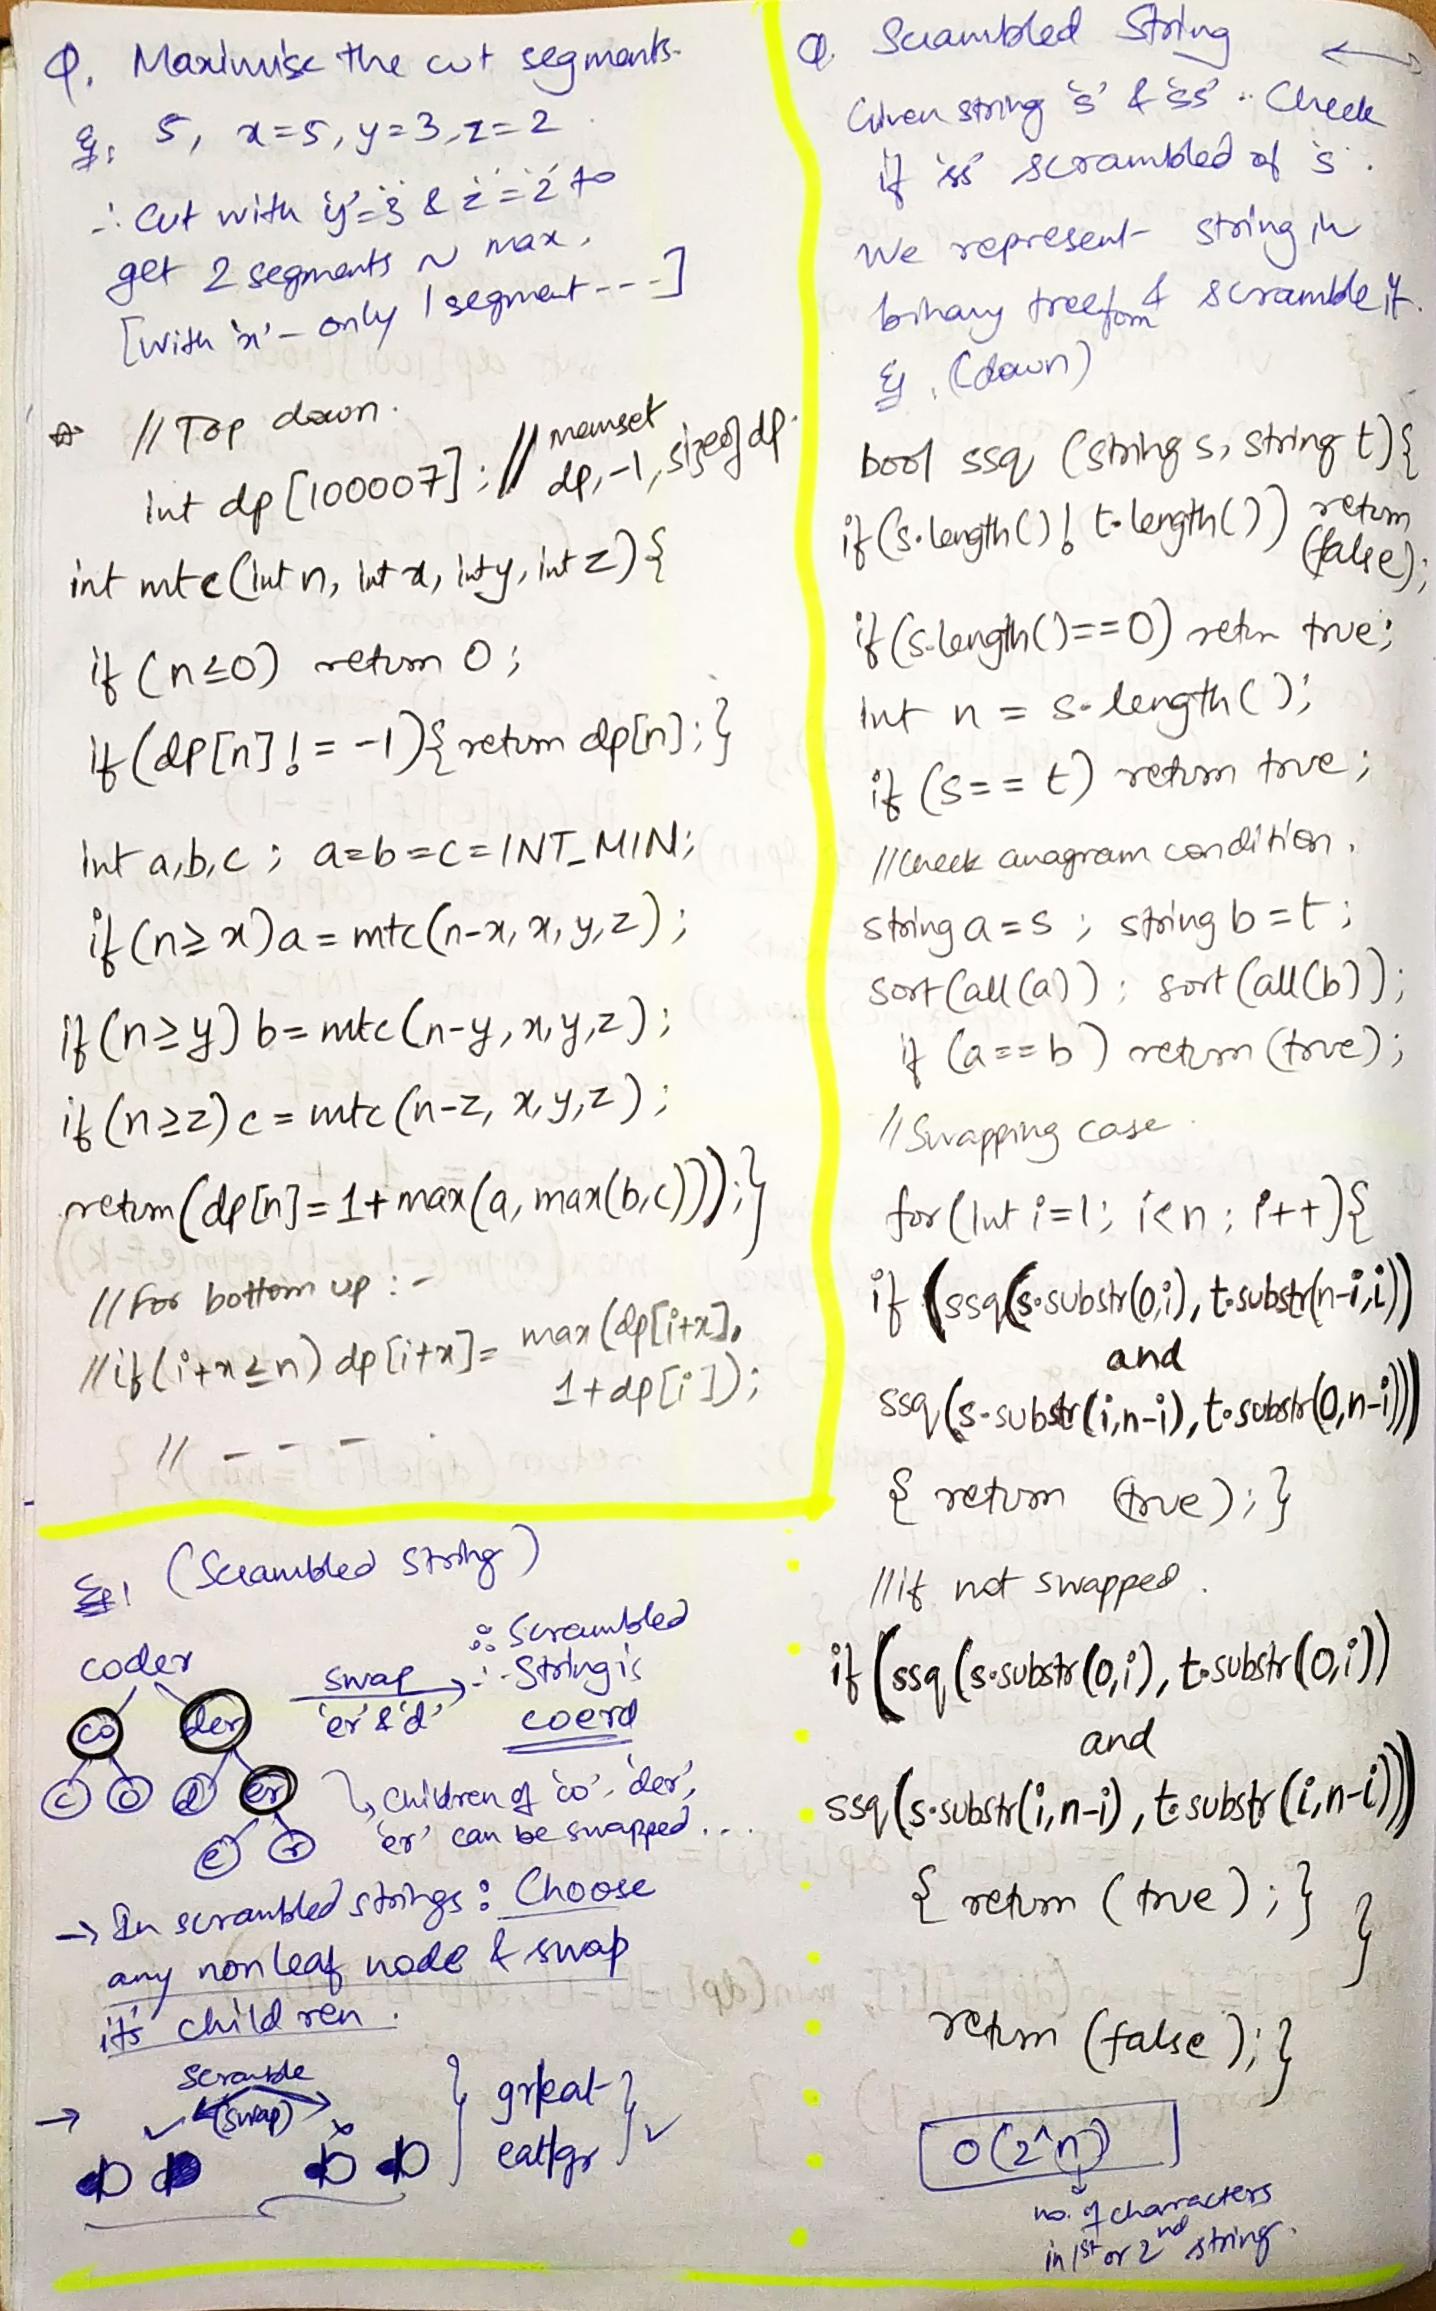 Q. Maximise the cut segments.
Eg: 5, x=5, y=3, z=2
∴ Cut with 'y'=3 & 'z'='2' to
get 2 segments ~ max.
[with 'x' - only 1 segment---]
// Top down.
int dp[100007]; // memset
dp,-1, sizeof dp.
int mtc(int n, int x, int y, int z){
if (n≤0) return 0;
if(dp[n]!= -1){return dp[n];}
int a,b,c; a=b=c=INT_MIN;
if(n≥x)a = mtc(n-x, x, y, z);
if(n≥y) b=mtc(n-y, x, y, z);
if(n≥z) c = mtc(n-z, x, y, z);
return(dp[n]=1+max(a, max(b,c)));}
// For bottom up :-
//if(i+x≤n) dp[i+x]= max(dp[i+x],
1+dp[i]);
// - - - .
Eg: (Scrambled string)
coder
co der
c o d er
e r
swap
'er' & 'd'
∴ Scrambled
String is
coerd
Children of 'co', 'der',
'er' can be swapped...
→ In scrambled strings: Choose
any non leaf node & swap
its' children.
→ Scramble
(swap)
gr|eat
eat|gr
Q. Scrambled String
Given string 's' & 'ss'. Check
if 'ss' scrambled of 's'.
We represent string in
binary tree form & scramble it.
Eg. (down)
bool ssq (string s, string t){
if(s.length()! t.length()) return
(false);
if(s.length()==0) retrn true;
int n = s.length();
if (s==t) return true;
//Check anagram condition.
string a=s; string b=t;
sort(all(a)); sort(all(b));
if (a==b) return(true);
//Swapping case.
for(int i=1; i<n; i++){
if (ssq(s.substr(0,i), t.substr(n-i,i))
and
ssq(s.substr(i,n-i), t.substr(0,n-i)))
{ return (true);}
//if not swapped.
if (ssq(s.substr(0,i), t.substr(0,i))
and
ssq(s.substr(i,n-i), t.substr(i,n-i)))
{ return (true);} }
return (false);}
O(2^n)
no. of characters
in 1st or 2nd string.